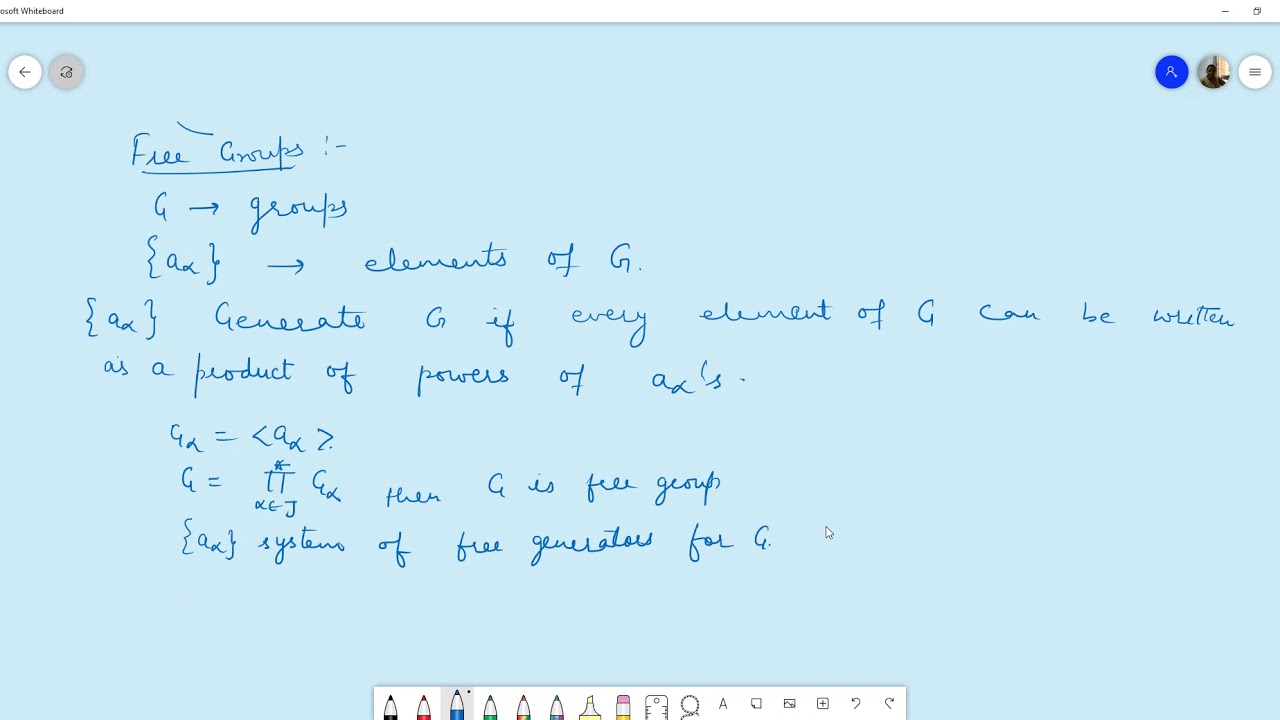 osoft Whiteboard
Free Groups :-
G → groups
{aα} → elements of G.
{aα} Generate G if every element of G can be written
as a product of powers of aα's.
Gα = <aα>.
G = ∏* Gα then G is free group
α∈J
{aα} system of free generators for G.
A